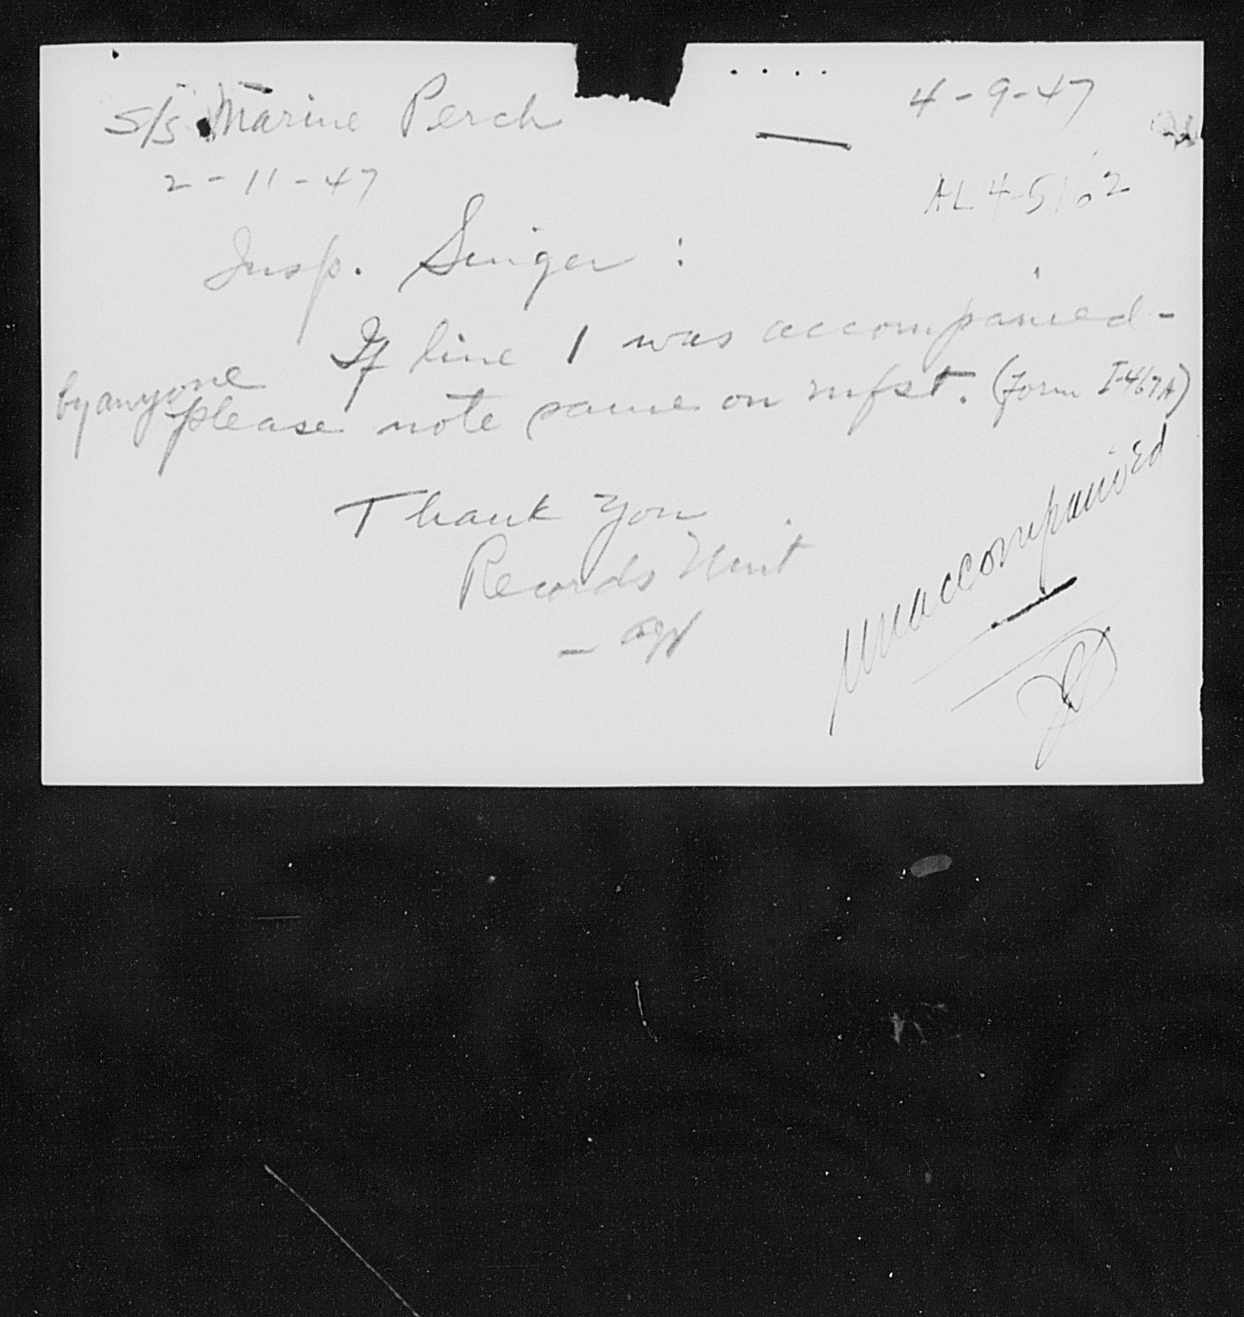 S/S Marine Perch
4-9-47
2-11-47
AL 4-5102
Insp. Singer:
If line 1 was accompanied-
by anyone
please note same on mfst. (Form I-467A)
Thank You
Records Unit
unaccompanied